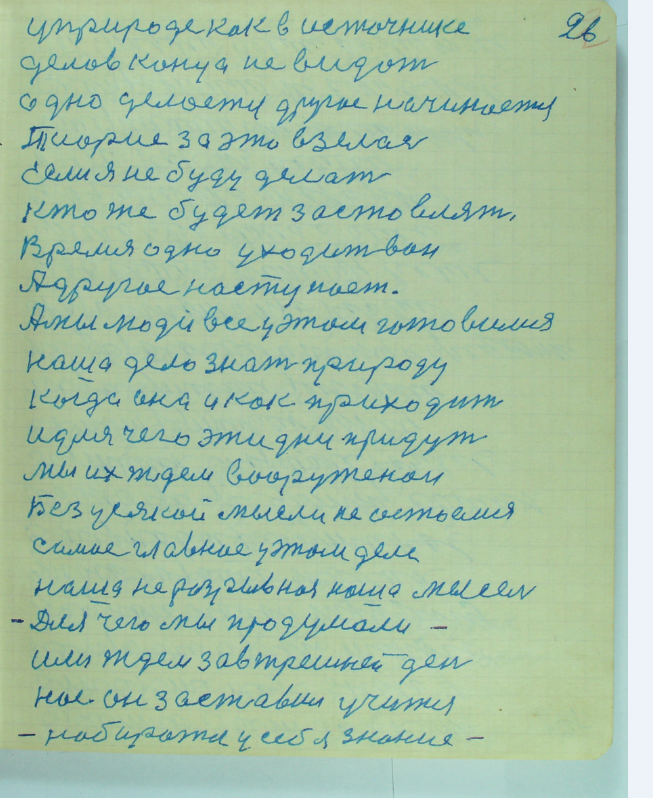 26
уприроде как в источнике
делов конца не видот
одно делоется другое начинается
Тиорие за это взелая
Если я не буду делат
кто же будет застовлят.
Время одно уходит вон
А другое наступоет.
А мы люди все у этом готовилия
наша дело знат природу
когда она и как приходит
и для чего эти дни придут
мы их ждем вооруженои
Без усякой мысли не остоется
самое главное у этом дела
наша неразривноя наша мысел
- Для чего мы продумали -
или ждем завтрешней ден
нас он заставил учится
- набиратся у себя знание -